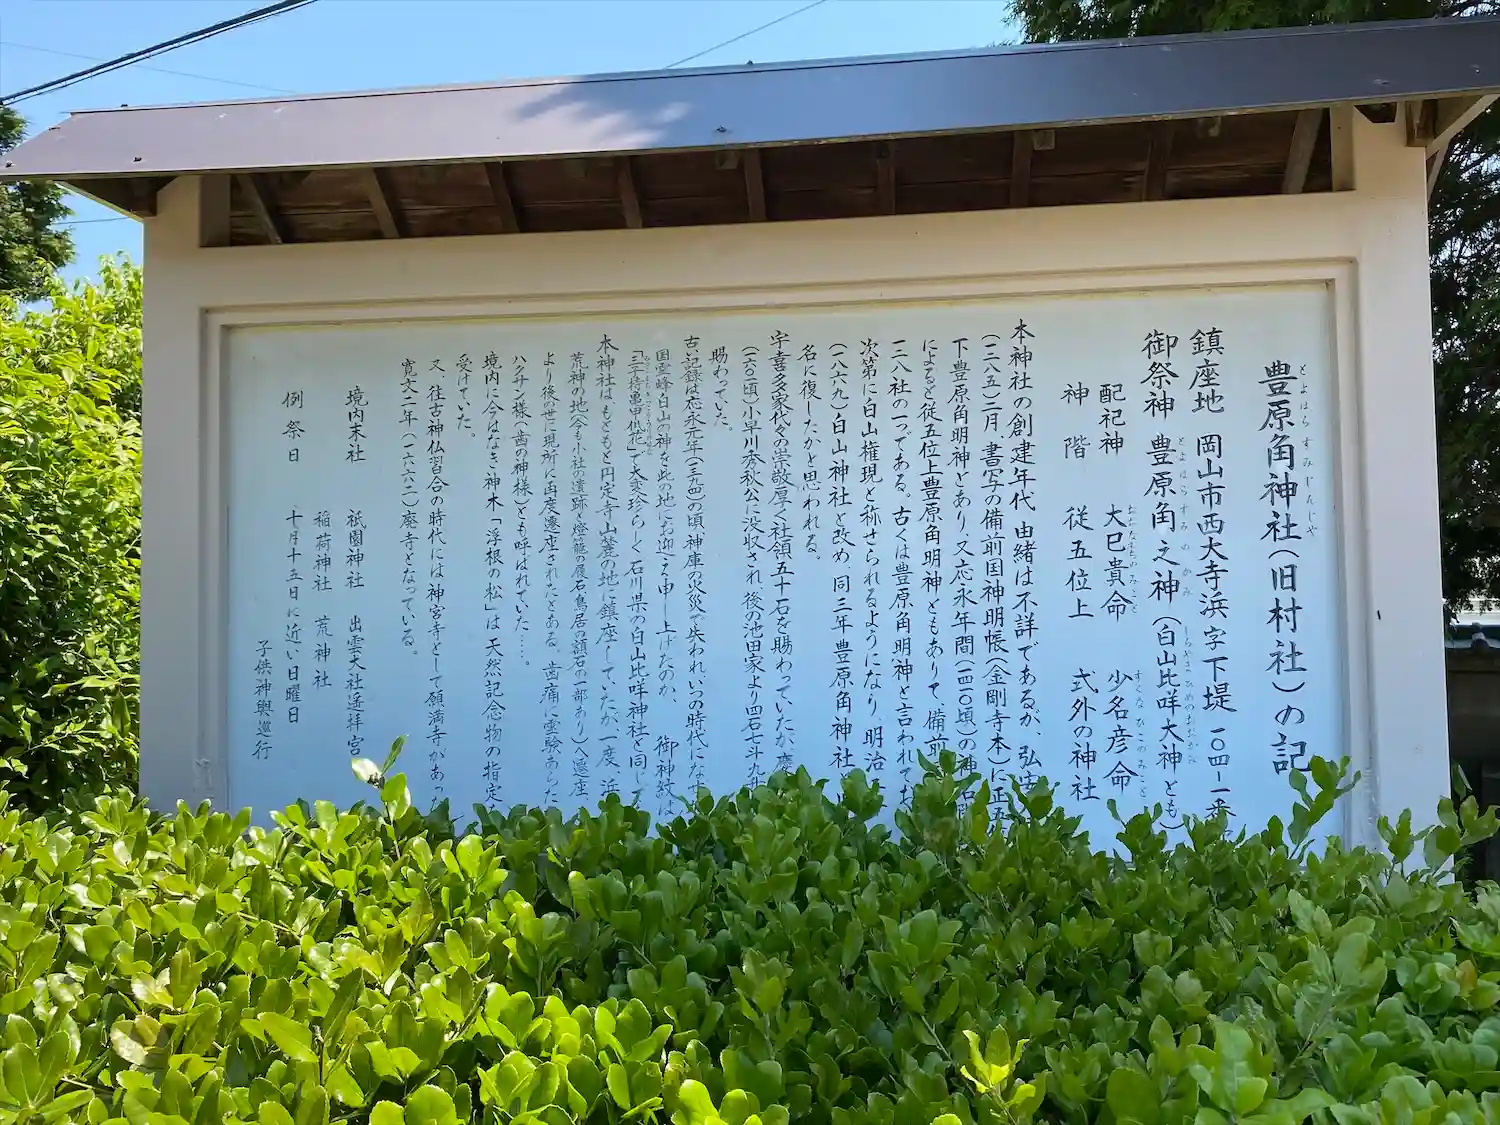 豊原角神社(旧村社)の記
とよはらすみじんじゃ
鎮座地 岡山市西大寺浜字下堤一〇四一番
御祭神 豊原角之神(白山比咩大神とも)
とよはらすみのかみ しらやまひめのおおかみ
配祀神 大巳貴命 少名彦命
おおなむちのみこと すくなひこのみこと
神階 従五位上 式外の神社
本神社の創建年代、由緒は不詳であるが、弘安
(一二八五)二月、書写の備前国神明帳(金剛寺本)に正五位
下豊原角明神とあり、又応永年間(一四一〇頃)の神名
によると従五位上豊原角明神ともありて、備前
一二八社の一つである。古くは豊原角明神と言われてお
次第に白山権現と称せられるようになり、明治
(一八六九)白山神社と改め、同三年豊原角神社
名に復したかと思われる。
宇喜多家代々の崇敬厚く社領五十石を賜わっていたが、慶
(一六〇一頃)小早川秀秋公に没収され後の池田家より四石一斗九升
賜わっていた。
古記録は応永元年(一三九四)の頃神庫の火災で失われ、いつの時代にな
国霊峰白山の神を此の地にお迎え申し上げたのか、 御神紋は
「三子持亀甲瓜花」で大変珍らしく石川県の白山比咩神社と同じで
本神社はもともと円定寺山麓の地に鎮座していたが一度、浜
荒神の地(今も小社の遺跡と燈籠・鳥居の額石の一部あり)へ遷座
より後の世に現所に再度遷座されたとある。歯痛に霊験あらた
ハクサン様(歯の神様)とも呼ばれていた…。
境内に今はなき神木「浮根の松」は天然記念物の指定
受けていた。
又、往古神仏習合の時代には神宮寺として願満寺があっ
寛文二年(一六六二)廃寺となっている。
境内末社 祇園神社 出雲大社遥拝宮
稲荷神社 荒神社
例祭日 十月十五日に近い日曜日
子供神輿巡行